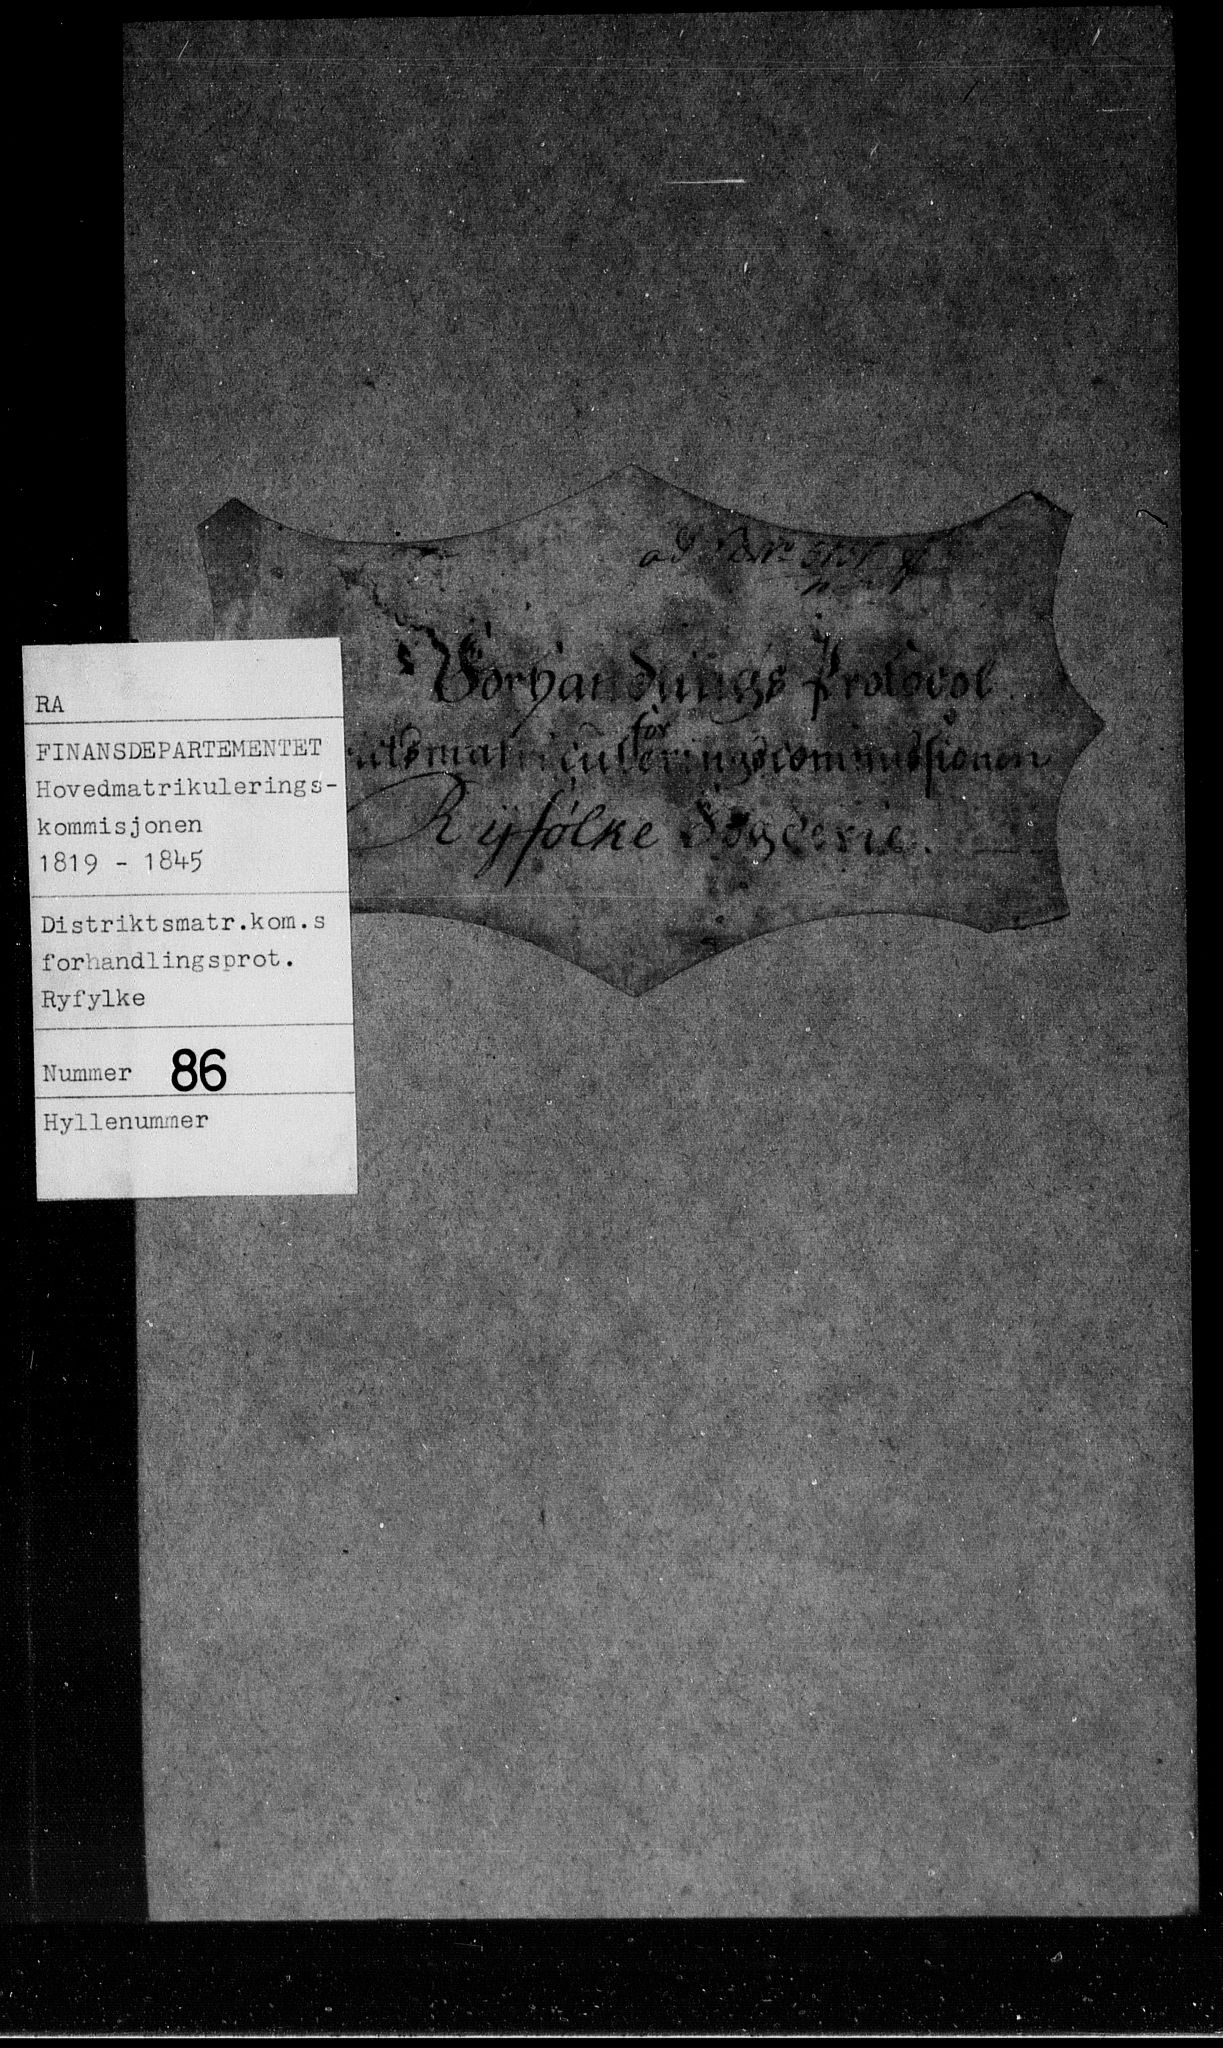 RA
FINANSDEPARTEMENTET
Hovedmatrikulerings-
kommisjonen
1819 - 1845
Distriktsmatr.kom.s
forhandlingsprot.
Ryfylke
Nummer 86
Hyllenummer
ad
Forhandlings Protocol
for
ictsmatriculeringscommissionen
Ryfølke Fogderie.